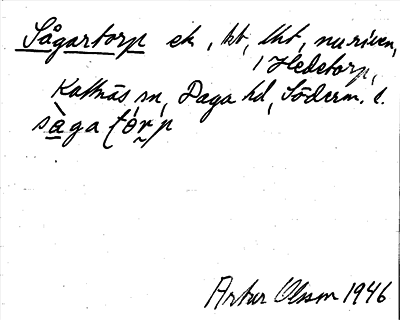 Sågartorp ek, tht, lht, nu riven,
i Hedetorp,
Kattnäs sn, Daga hd, Söderm. l.
sàga tór̰p
Artur Olsson 1946